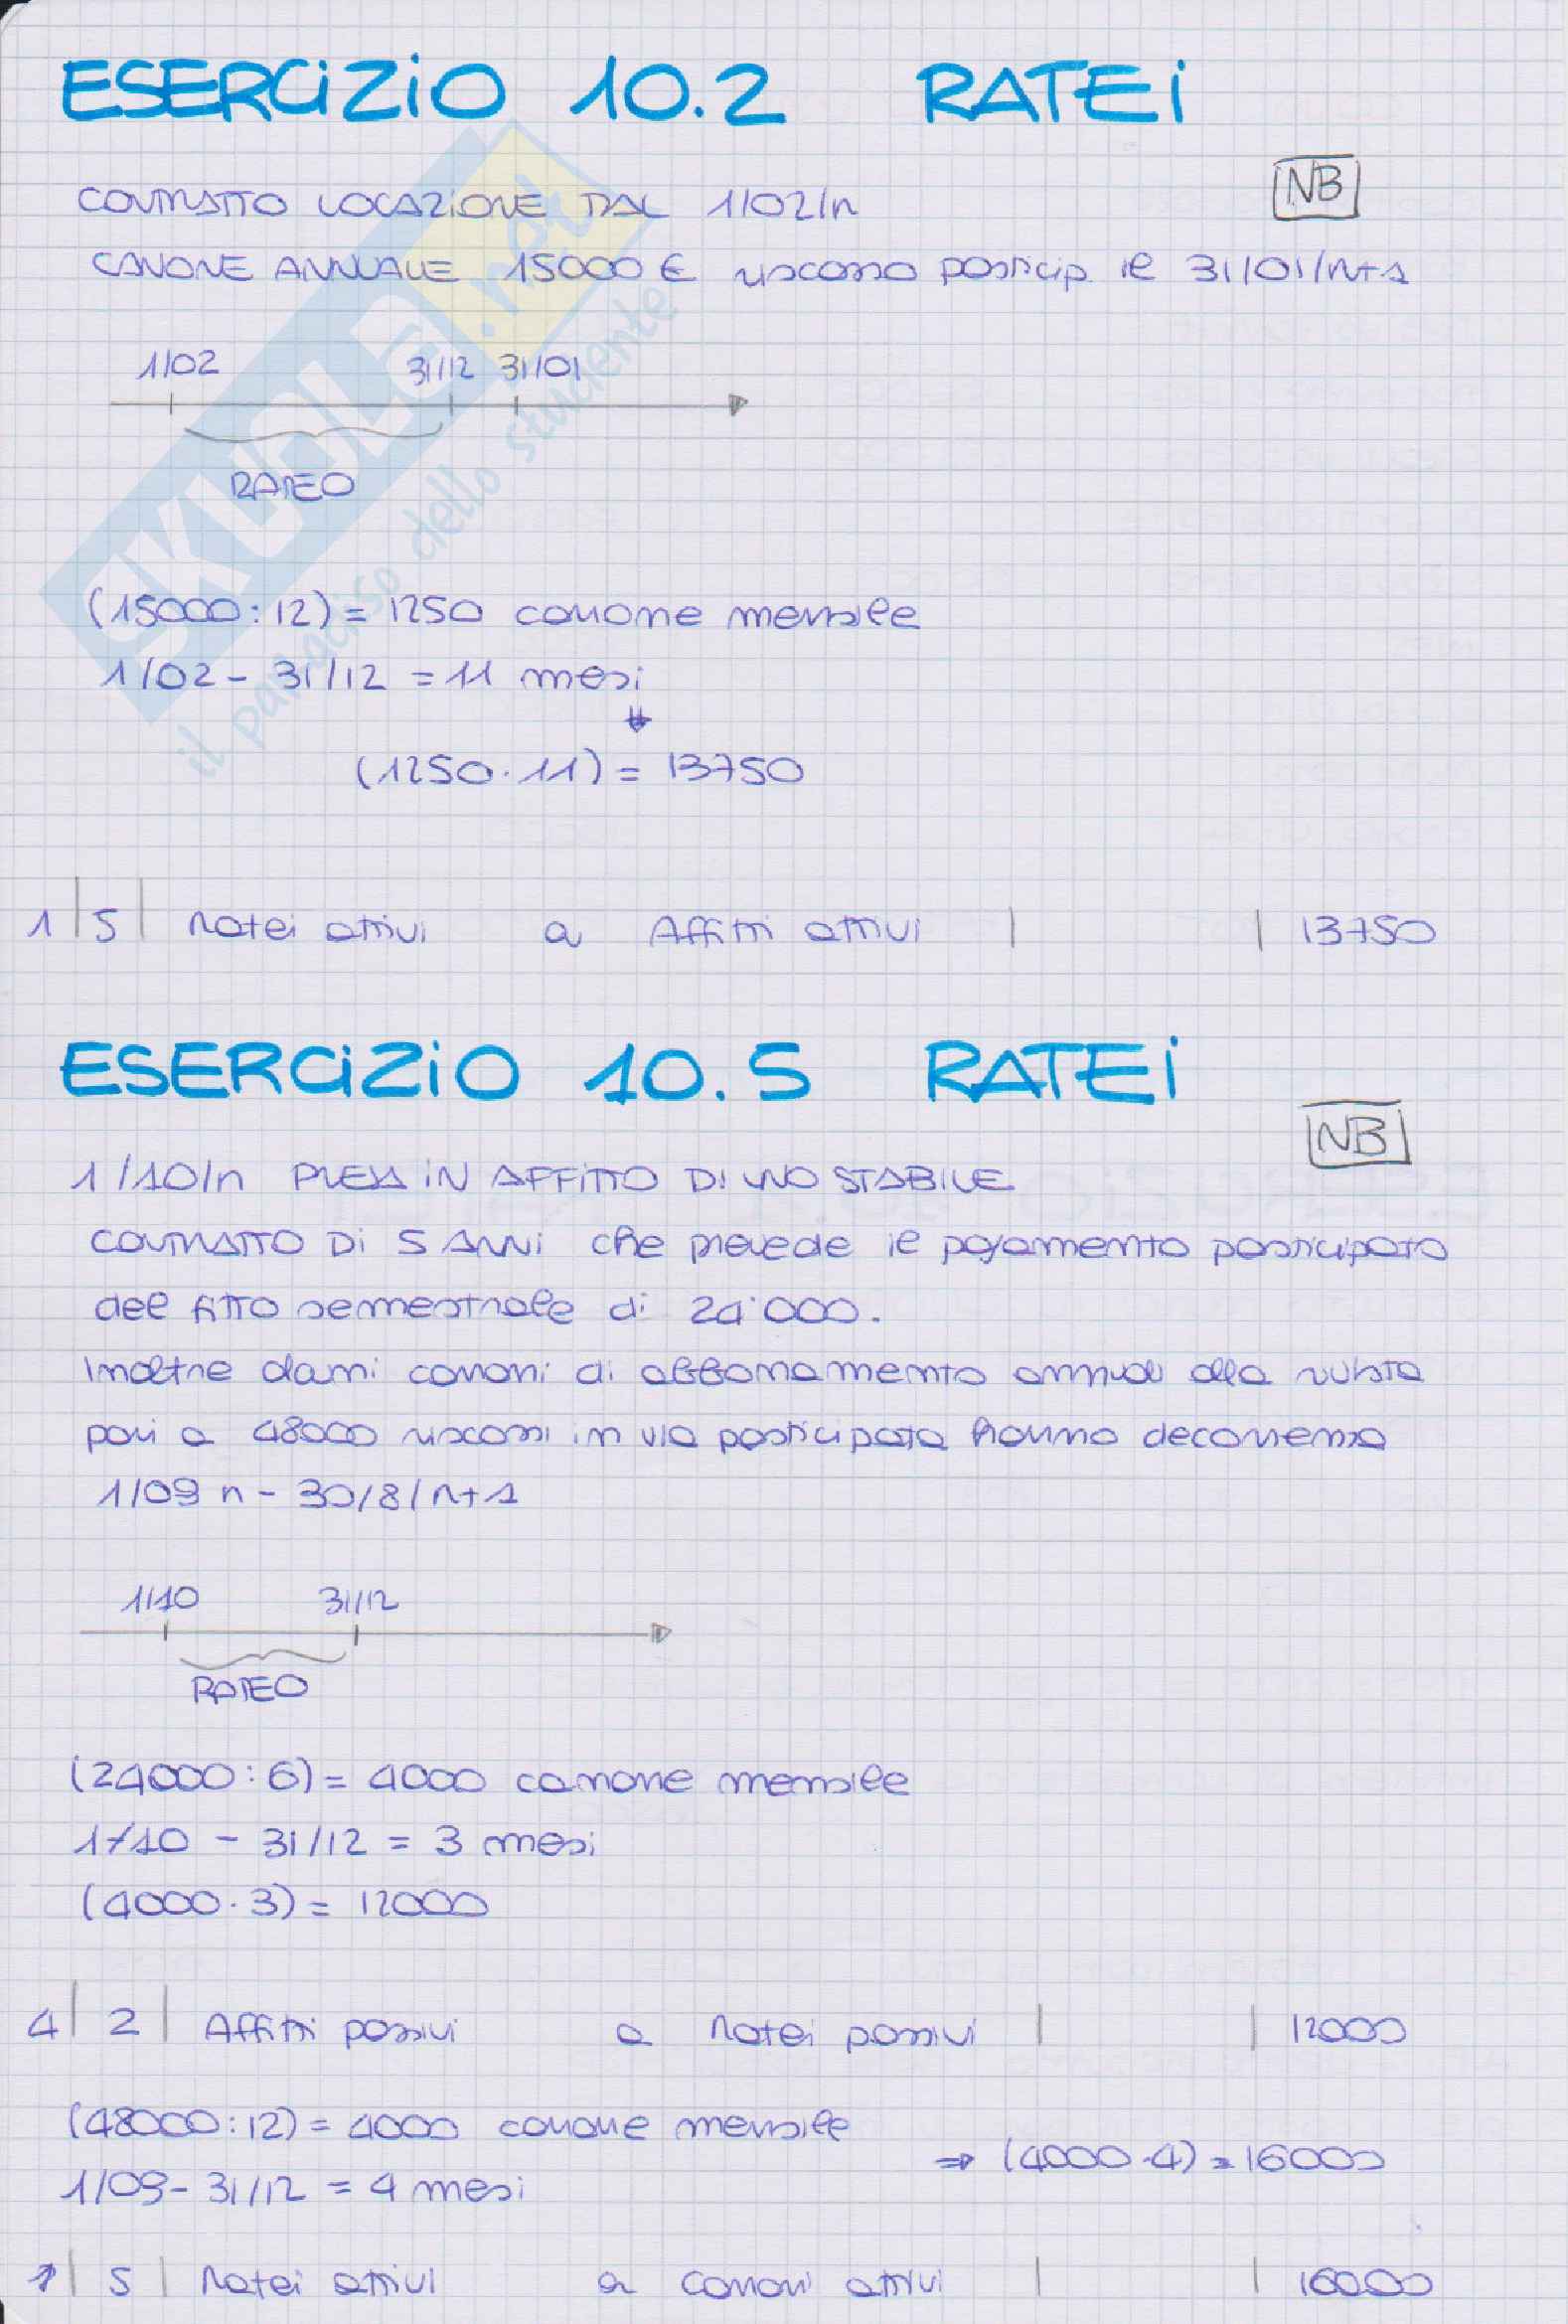 ESERCIZIO 10.2 RATEI
NB
CONTRATTO LOCAZIONE DAL 1/02/n
CANONE ANNUALE 15000 € riscosso posticip. il 31/01/n+1
1/02 31/12 31/01
RATEO
(15000:12) = 1250 canone mensile
1/02 - 31/12 = 11 mesi
(1250·11) = 13750
1 | 5 | Ratei attivi a Affitti attivi | | 13750
ESERCIZIO 10.5 RATEI
NB
1/10/n PRESA IN AFFITTO DI UNO STABILE
CONTRATTO DI 5 ANNI che prevede il pagamento posticipato
del fitto semestrale di 24'000.
Inoltre danni canoni di abbonamento annuali alla rivista
pari a 48000 riscossi in via posticipata hanno decorrenza
1/09 n - 30/8/n+1
1/10 31/12
RATEO
(24000:6) = 4000 canone mensile
1/10 - 31/12 = 3 mesi
(4000·3) = 12000
4 | 2 | Affitti passivi a Ratei passivi | | 12000
(48000:12) = 4000 canone mensile
⇒ (4000·4) = 16000
1/09 - 31/12 = 4 mesi
1 | 5 | Ratei attivi a canoni attivi | | 16000
SKUOLA.net
il paradiso dello studente